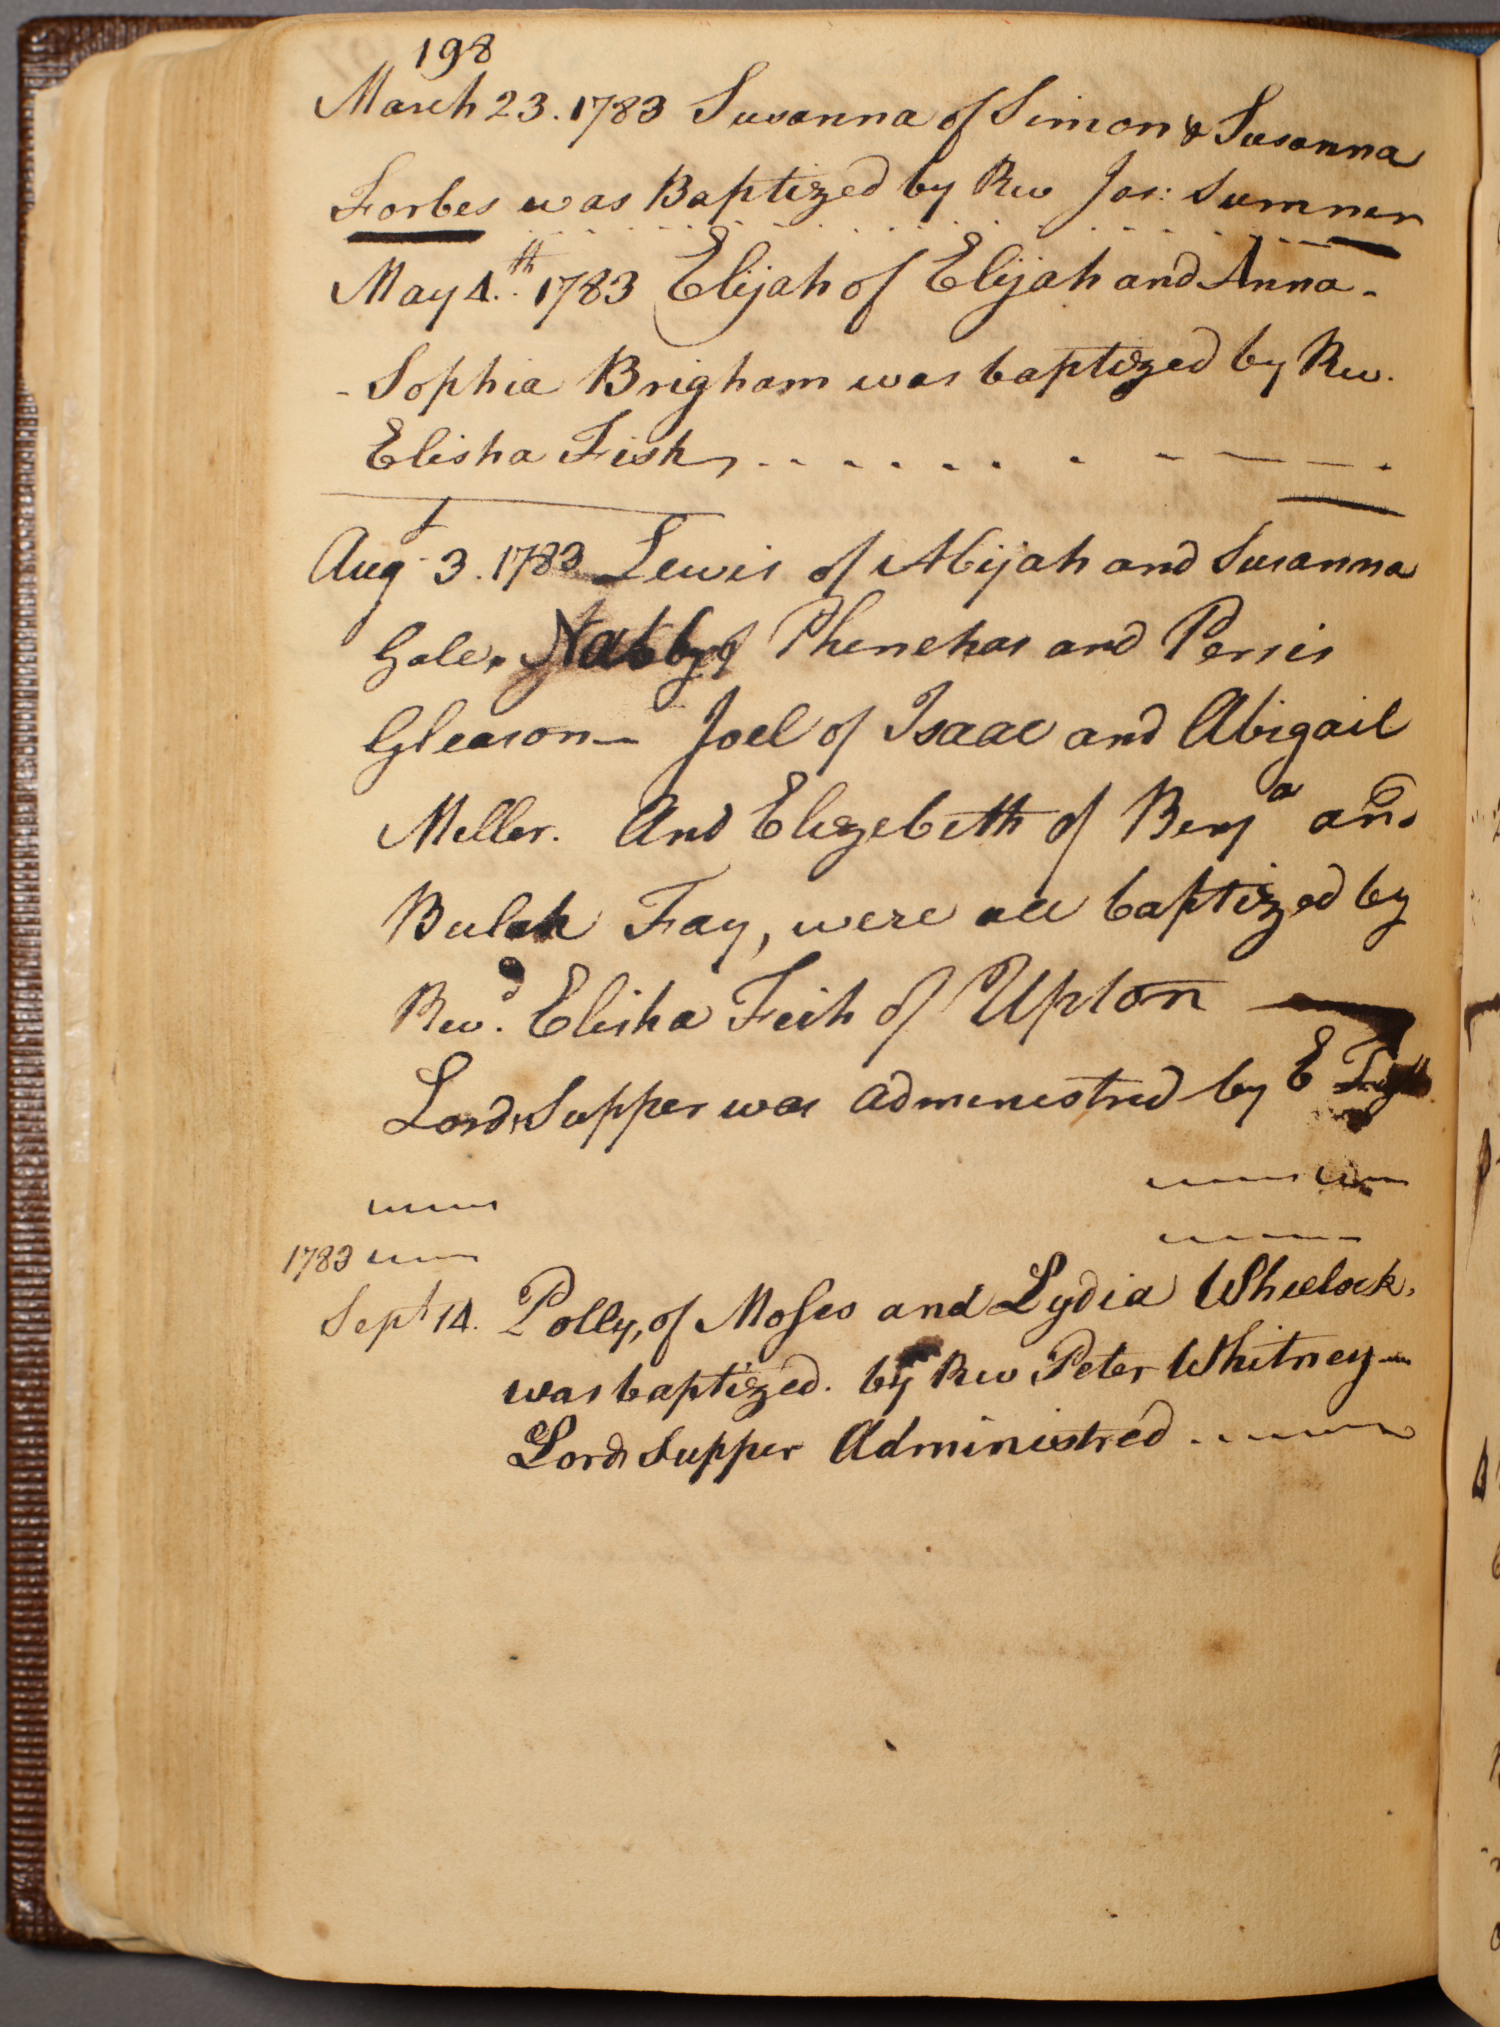 198
March 23. 1783 Susanna of Simon & Susanna
Forbes was Baptized by Rev Jos: Sumner
May 4th. 1783 Elijah of Elijah and Anna-
-Sophia Brigham was baptized by Rev.
Elisha Fish,
Augt 3. 1783 Lewis of Abijah and Susanna
Gale, Nabby of Phenehas and Persis
Gleason- Joel of Isaac and Abigail
Meller. And Elizebeth of Benja and
Bulah Fay, were all baptized by
Revd. Elisha Fish of Upton
Lords Supper was administred by E
1783
Sept 14. Polly, of Moses and Lydia Wheelock,
was baptized. by Rev Peter Whitney-
Lords Supper Administred